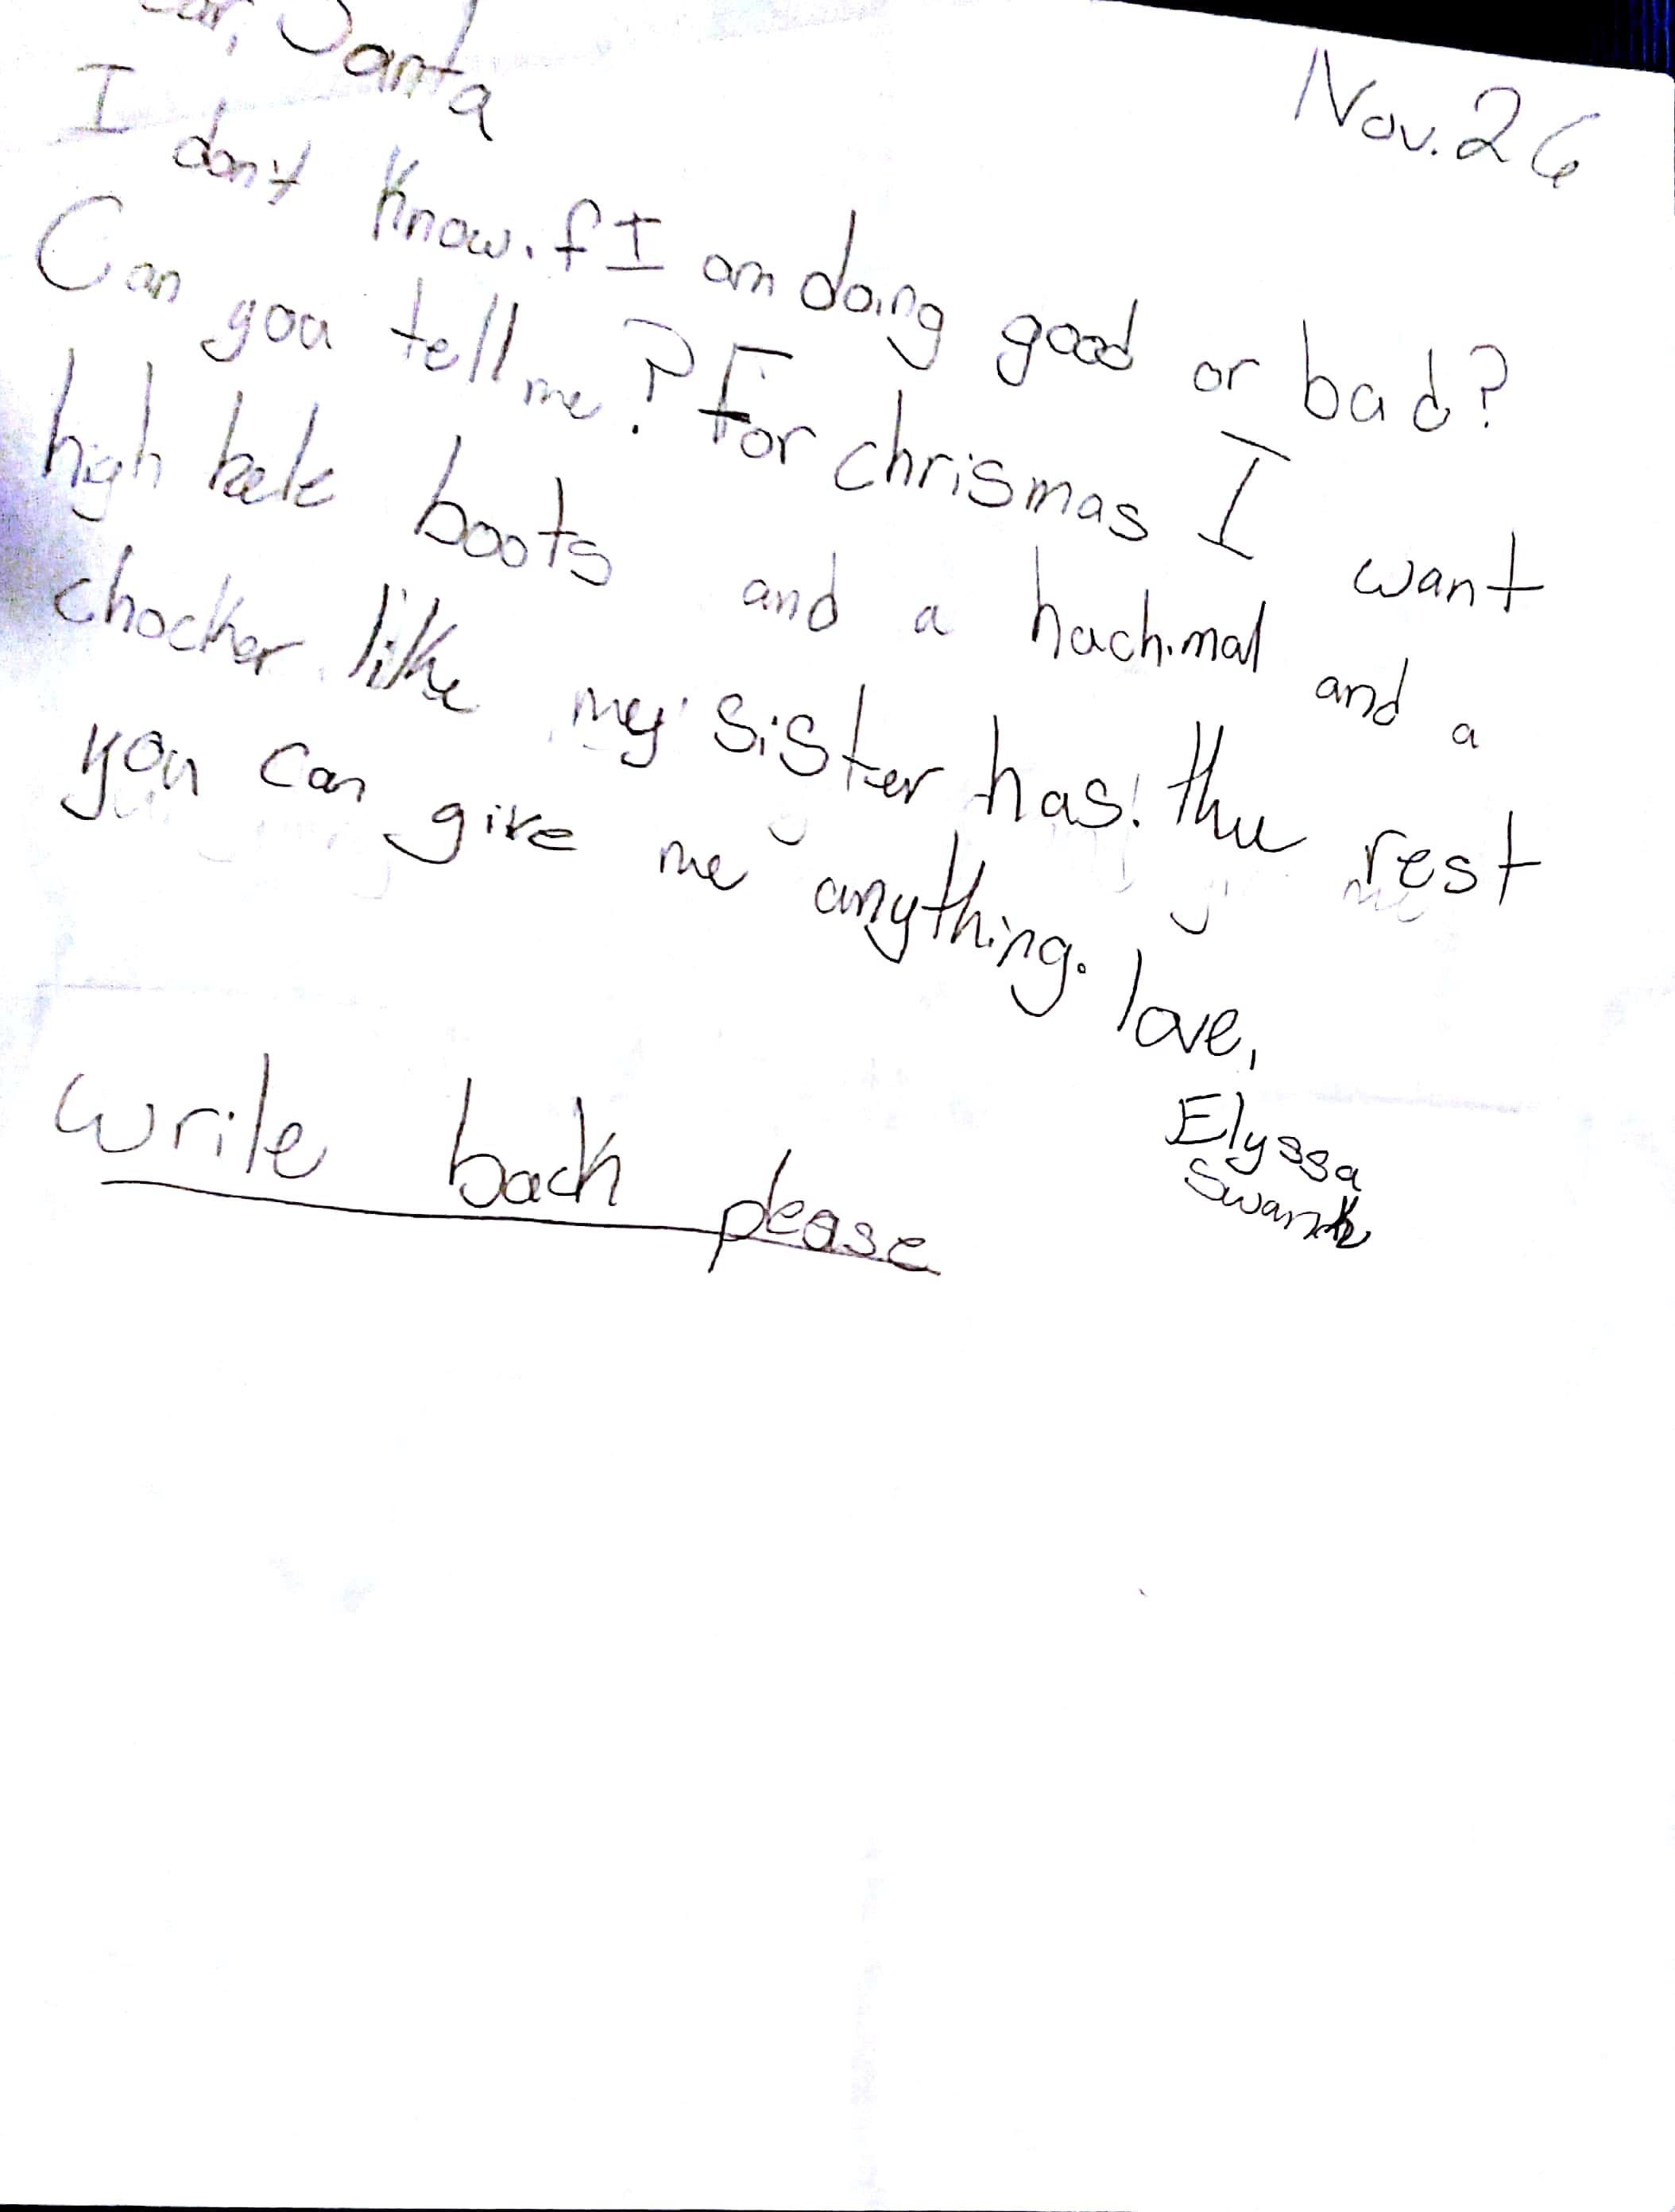 Nov. 26
Santa
I don't know if I am doing good or bad?
Can you tell me? For chrismas I want
high boots and a hachimal and a
chocker like my sister has! the rest
you can give me anything. love,
Elyssa
Swank
write back please